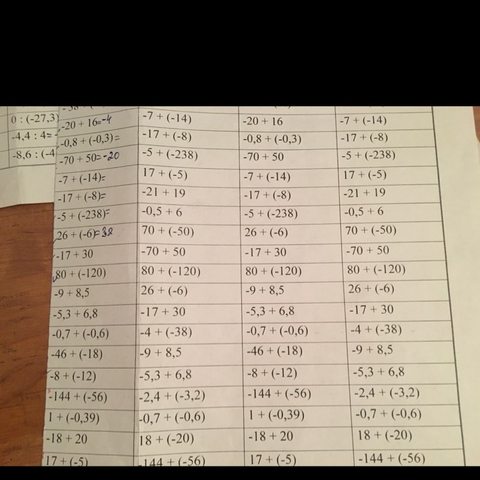 0 : (-27,3)
-4,4 : 4=
-8,6 : (-4
-20 + 16=-4 -7 + (-14) -20 + 16 -7 + (-14)
-0,8 + (-0,3)= -17 + (-8) -0,8 + (-0,3) -17 + (-8)
-70 + 50=-20 -5 + (-238) -70 + 50 -5 + (-238)
-7 + (-14)= 17 + (-5) -7 + (-14) 17 + (-5)
-17 + (-8)= -21 + 19 -17 + (-8) -21 + 19
-5 + (-238)= -0,5 + 6 -5 + (-238) -0,5 + 6
26 + (-6)= 70 + (-50) 26 + (-6) 70 + (-50)
-17 + 30 -70 + 50 -17 + 30 -70 + 50
80 + (-120) 80 + (-120) 80 + (-120) 80 + (-120)
-9 + 8,5 26 + (-6) -9 + 8,5 26 + (-6)
-5,3 + 6,8 -17 + 30 -5,3 + 6,8 -17 + 30
-0,7 + (-0,6) -4 + (-38) -0,7 + (-0,6) -4 + (-38)
-46 + (-18) -9 + 8,5 -46 + (-18) -9 + 8,5
-8 + (-12) -5,3 + 6,8 -8 + (-12) -5,3 + 6,8
-144 + (-56) -2,4 + (-3,2) -144 + (-56) -2,4 + (-3,2)
1 + (-0,39) -0,7 + (-0,6) 1 + (-0,39) -0,7 + (-0,6)
-18 + 20 18 + (-20) -18 + 20 18 + (-20)
17 + (-5) -144 + (-56) 17 + (-5) -144 + (-56)